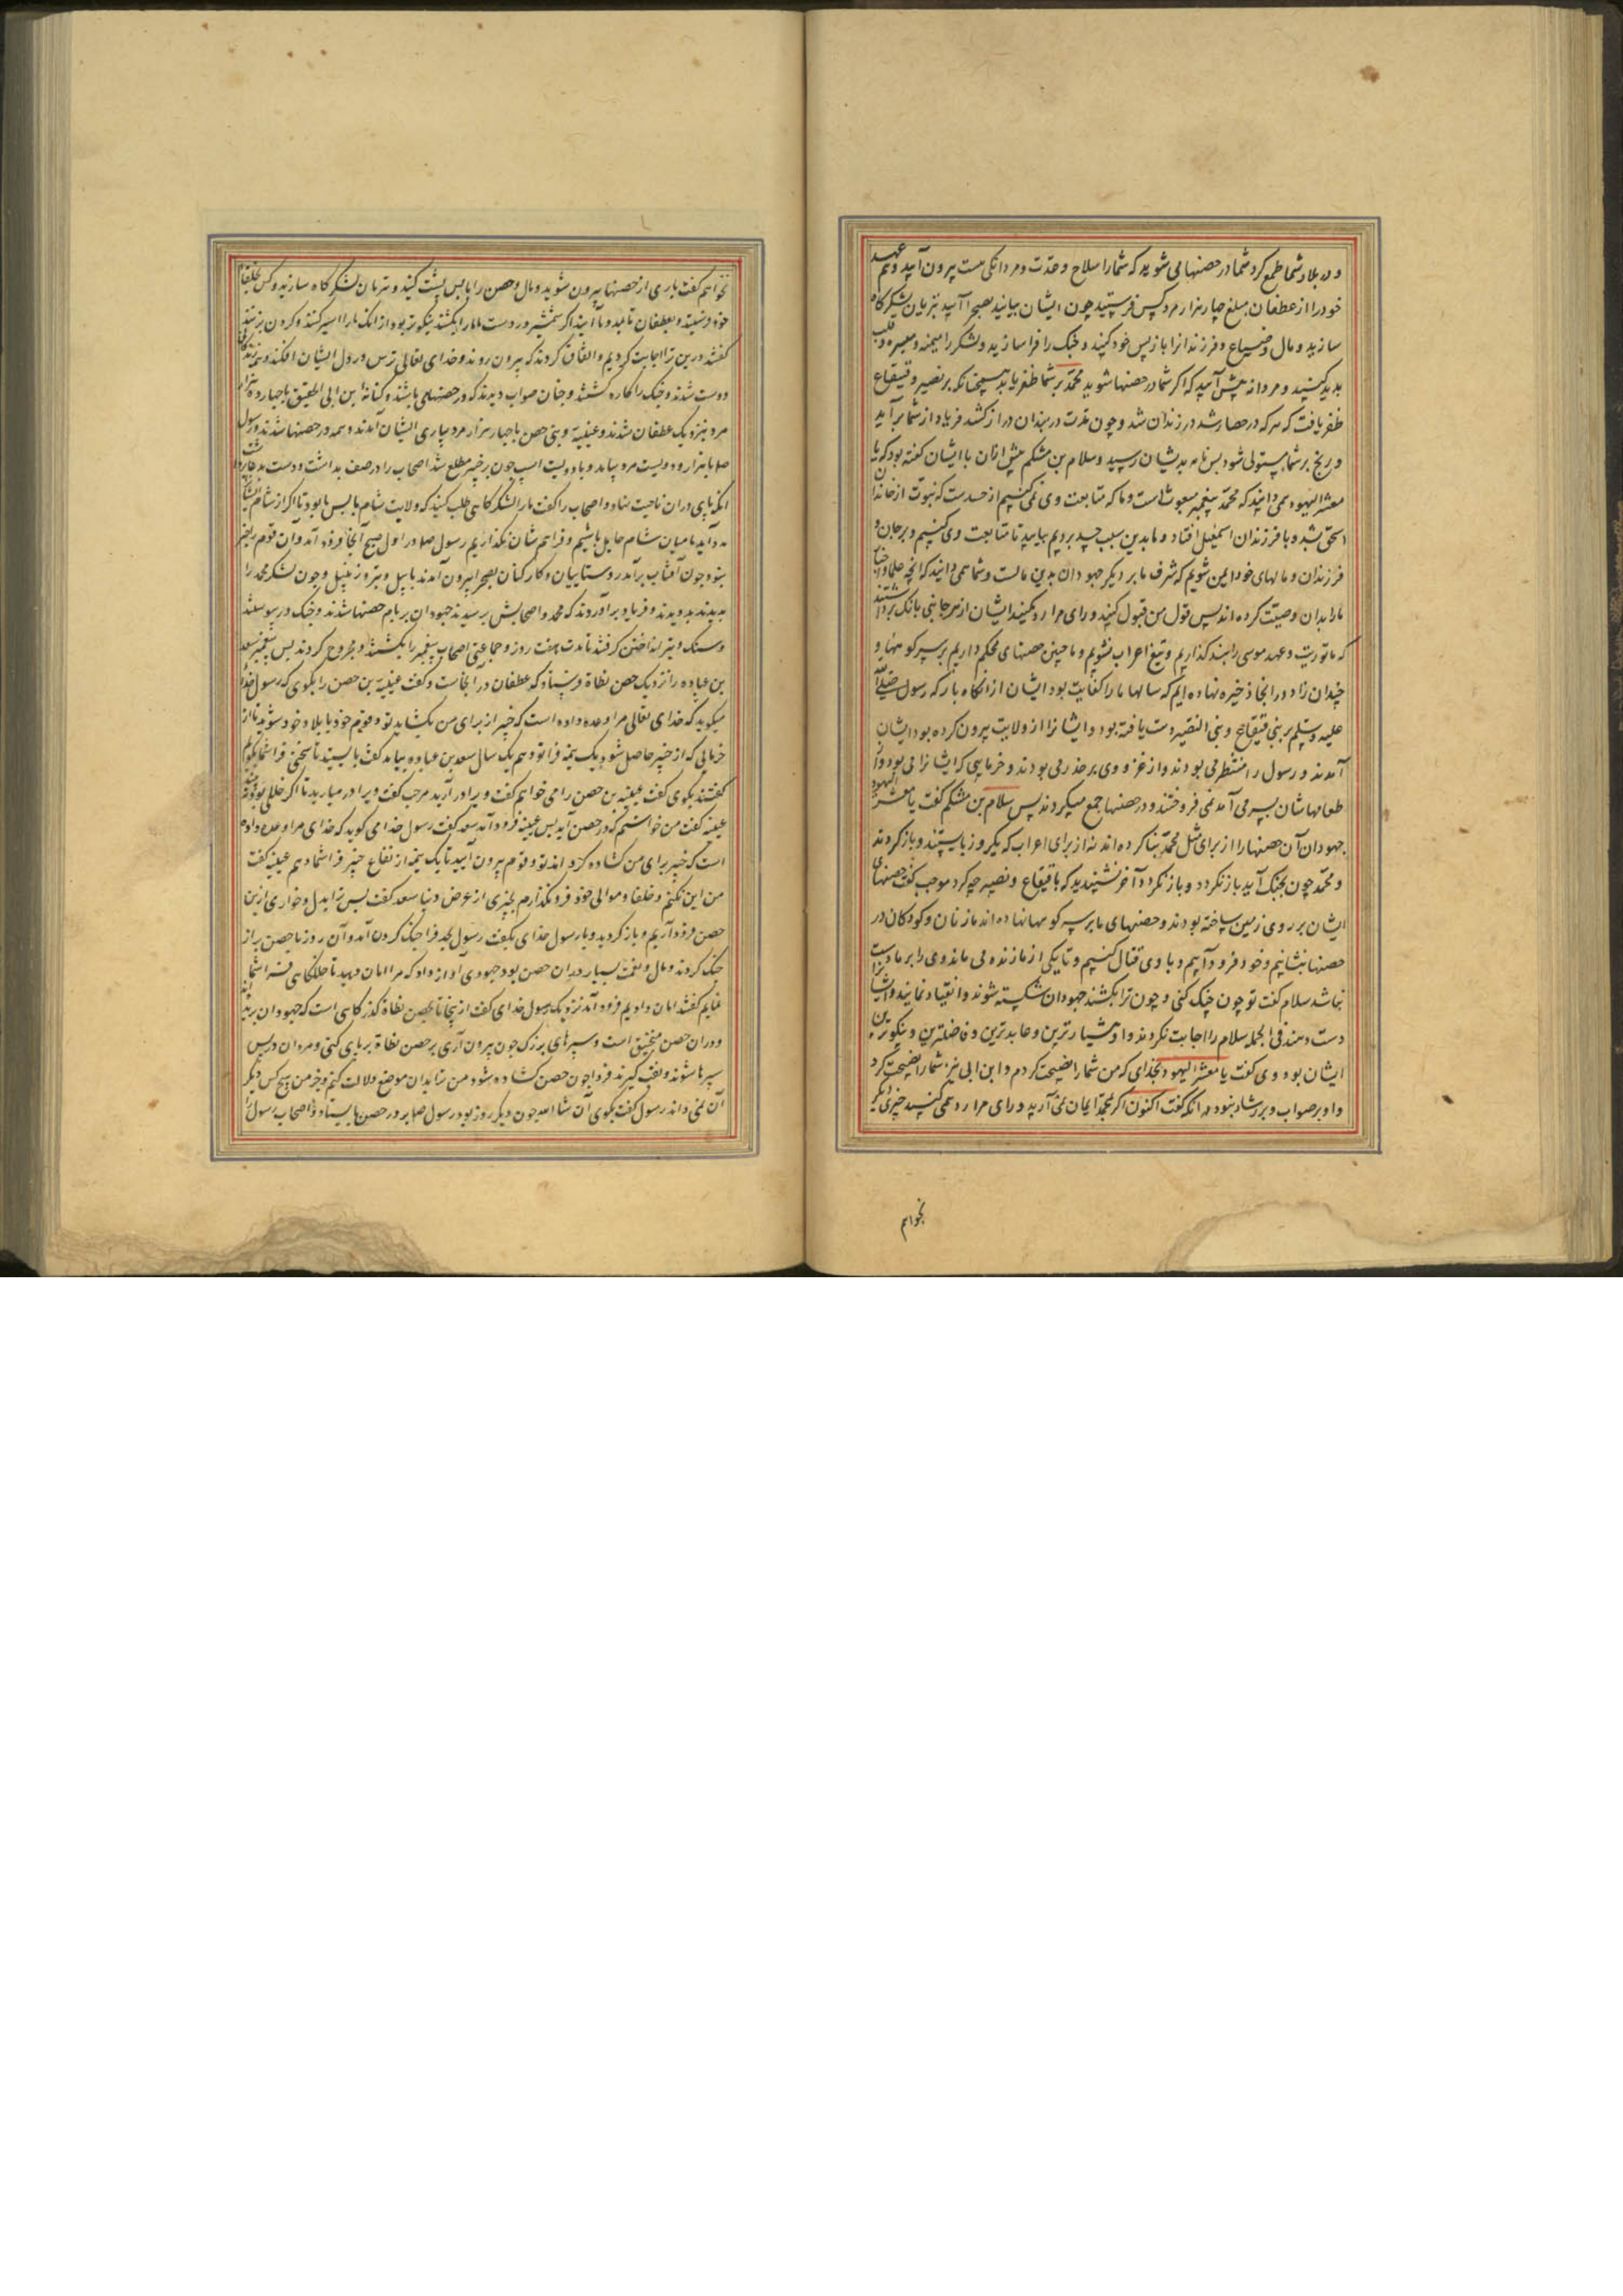 و در بلاد شما طمع کرد شما در حصنها می شوید که شما را سلاح و عدت و مردانگی هست بیرون آیید و هم عهد
خود را از غطفان مبلغ چهار هزار مرد کس فرستید چون ایشان بیایند بصحرا آیید بتریان لشکرگاه
سازید و مال و ضیاع و فرزندانرا باز پس خود کنید و جنک را فرا سازید و لشکر را میمنه و میسره و قلب
بدید کنید و مردانه پیش آیید که اکر شما در حصنها شوید محمد بر شما ظفر یابد همچنانکه بر نضیر و قینقاع
ظفر یافت که هر که در حصار شد در زندان شد و چون مدت در بندان دراز کشد فریاد از شما بر آید
و رنج بر شما مستولی شود پس نامه بدیشان رسید و سلام بن مشکم پیش ازان با ایشان کفته بود که یا
معشر الیهود همی دانید که محمد پیغمبر مبعوث است و ما که متابعت وی نمی کنیم از حسدست که نبوت از خاندان
اسحق بشده با فرزندان اسمعیل افتاد و ما بدین سبب حسد بردیم بیایید تا متابعت وی کنیم و بر جان و
فرزندان و مالهای خود ایمن شویم که شرف ما بر دیگر جهودان بدین مالست و شما همی دانید که انچه علما و احبار
ما را بدان وصیت کرده اند پس قول من قبول کنید و رای مرا رد مکنید ایشان از هر جانبی بانک برداشتند
که ما توریت و عهد موسی را بنگذاریم و تبع اعراب نشویم و ما چنین حصنهای محکم داریم بر سر کوهها و
چندان زاد در انجا ذخیره نهاده ایم که سالها ما را کفایت بود ایشان از انگاه باز که رسول صلی الله
علیه و سلم بر بنی قینقاع و بنی النضیر دست یافته بود و ایشانرا از ولایت بیرون کرده بود ایشان
آمدند و رسول را منتظر می بودند و از غزو وی بر حذر می بودند و خرمایی که ایشانرا می بود و از
طعامهاشان بسر می آمد نمی فروختند و در حصنها جمع میکردند پس سلام بن مشکم کفت یا معشر الیهود
جهودان آن حصنها را از برای مثل محمد بنا کرده اند نه از برای اعراب که یکروز بایستند و باز گردند
و محمد چون بجنک آید باز نگردد و باز نگردد آخر نشنیدید که با قینقاع و نضیر چه کرد مرحب کفت حصنهای
ایشان بر روی زمین ساخته بودند و حصنهای ما بر سر کوهها نهاده اند ما زنان و کودکان در
حصنها بنشانیم و خود فرود آییم و با وی قتال کنیم و تا یکی از ما زنده می ماند وی را بر ما دست
نباشد سلام کفت تو چون جنک کنی و چون ترا بکشند جهودان شکسته شوند و انقیاد نمایند و ایشانرا
دست دهند فی الجمله سلام را اجابت نکردند و او هشیارترین و عابدترین و فاضلترین و نیکوترین
ایشان بود و وی کفت یا معشر الیهود بخدای که من شما را نصیحت کردم و ابن ابی نیز شما را نصیحت کرد
و او بر صواب و بر رشاد نبود در انکه کفت اکنون اکر بمحمد ایمان نمی آرید و رای مرا رد همی کنید چیزی دیگر
بخواهم
نخواهم کفت باری از حصنها بیرون شوید و مال و حصن را با پس پشت کنید و بتریان لشکرگاه سازید و کس بحلفاء
خود فرستید و بغطفان تا مدد ما آیند اکر شمشیر در دست ما ما را بکشند نیکوتر بود از انک ما را اسیر کنند و گردن بزنند
کفتند درین ترا اجابت کردیم و اتفاق کردند که بیرون روند و خدای تعالی ترس در دل ایشان افکند و همه زندگانی
دوست شدند و جنک را کاره گشتند و چنان صواب دیدند که در حصنهای باشند و کنانة ابن ابی الحقیق با چهارده هزار
مرد بنزدیک غطفان شدند و عیینه و بنی حصن با چهار هزار مرد بیاری ایشان آمدند و همه در حصنها شدند و رسول
صلم با هزار و دویست مرد بیامد و با دویست اسب چون بر خیبر مطلع شد اصحاب را در صف بداشت و دست بدعا برداشت
انکه پای دران ناحیت نهاد و اصحاب را کفت ما را لشکرگاهی طلب کنید که ولایت شام با پس ما بود تا اکر از شام ایشانرا
مدد آید ما میان شام حایل باشیم و فراهم شان نگذاریم رسول صلم در اول صبح آنجا فرود آمد و آن قوم را خبر
نبود چون آفتاب برآمد روستاییان و کارکنان بصحرا بیرون آمدند با بیل و تبر و زنبیل و چون لشکر محمد را
بدیدند بدویدند و فریاد برآوردند که محمد و اصحابش برسیدند جهودان بر بام حصنها شدند و جنک در پیوستند
و سنک و تیر انداختن گرفتند تا مدت هفت روز و جماعتی اصحاب پیغمبر را بکشتند و مجروح کردند پس پیغمبر سعد
بن عباده را نزدیک حصن نطاة فرستاد که غطفان در آنجاست و کفت عیینه بن حصن را بگوی که رسول خدا
میکوید که خدای تعالی مرا وعده داده است که خیبر از برای من بکشاید تو و قوم خود با بلاد خود شوید تا از
خرمایی که از خیبر حاصل شود یک نیمه فرا تو دهم یک سال سعد بن عباده بیامد کفت بایستید تا سخنی فرا شما بگویم
کفتند بگوی کفت عیینه بن حصن را می خواهم کفت ویرا در آرید مرحب کفت ویرا در میارید تا اکر خللی بود
عیینه کفت من خواستم که در حصن آید پس عیینه فرود آمد سعد کفت رسول خدا می کوید که خدای مرا وعده داده
است که خیبر برای من گشاده گرداند تو و قوم بیرون آیید تا یک نیمه از نفاع خیبر فرا شما دهم عیینه کفت
من این نکنم و حلفا و موالی خود فرو نگذارم بچیزی از عرض دنیا سعد کفت پس ترا بدل و خواری ازین
حصن فرود آریم و باز گردید و با رسول خدای بگفت رسول بجد فرا جنک کردن آمد و آن روز با حصن براز
جنک کردند و مال و نعمت بسیار دران حصن بود جهودی آواز داد که مرا امان دهید تا خللگاهی فرا شما
نمایم کفتند امان دادیم فرود آمد نزدیک رسول خدای کفت از پنجا تا بحصن نطاة گذرگاهی است که جهودان برند
و دران حصن منجنیق است و سپرهای بزرگ چون بیرون آری بر حصن نطاة بر پای کنی و مردان در پس
سپرها شوند و نقب گیرند فردا چون حصن گشاده شود من شاید ان موضع دلالت کنم و جز من هیچ کس دیگر
آن نمی داند رسول کفت بگوی ان شا الله چون دیگر روز بود رسول صلم بر در حصن بایستاد و اصحاب رسول را